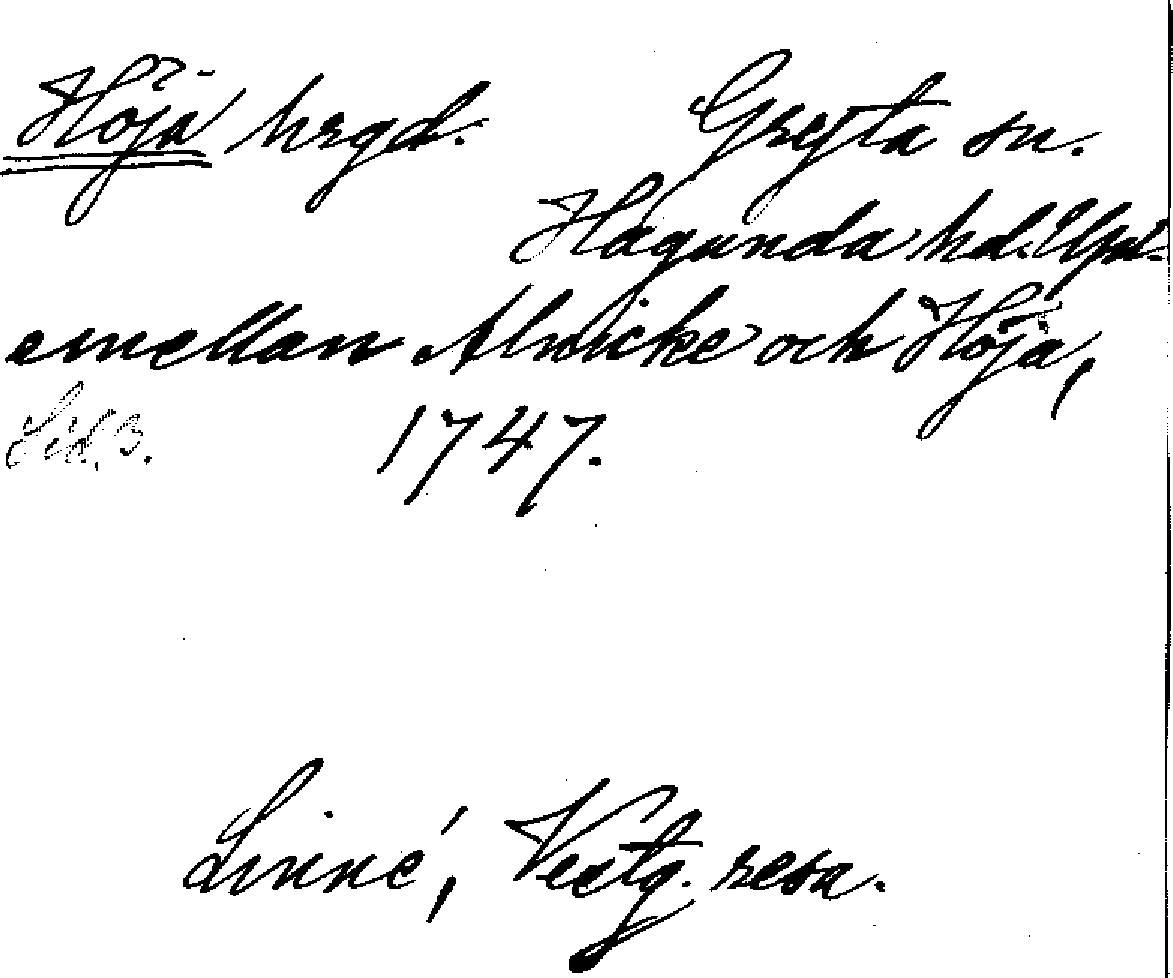 Höja hrgd. Gryta sn.
Hagunda hd. Upl.
emellan Alwicke och Höja,
Sid. 3. 1747.
Linné, Vestg. resa.